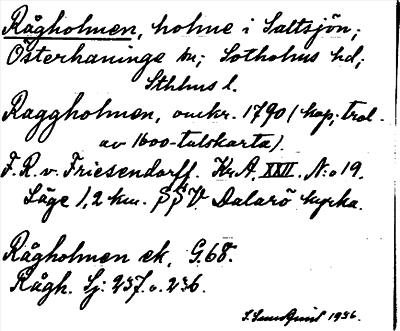 Rågholmen, holme i Saltsjön;
Österhaninge sn; Sotholms hd;
Sthlms l.
Raggholmen, omkr. 1790 (kop; trol.
av 1600-talskarta).
F. R. v. Friesendorff. Kr.A. XXII. N:o 19.
Läge 1,2 km. SSV Dalarö kyrka.
Rågholmen ek. G.68.
Rågh. Sj: 257. o. 236.
1936.